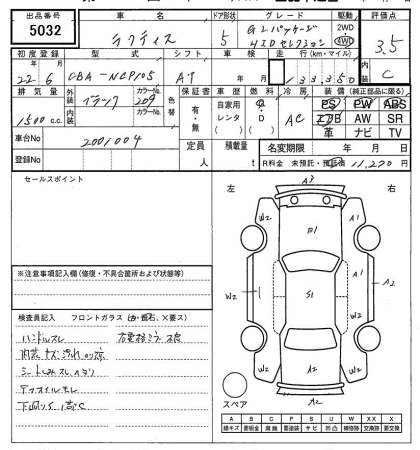 出品番号 車名 ドア形状 グレード 駆動 評価点
5032 ラクティス 5 GLパッケージ 2WD 4WD 3.5
HIDセレクション
初度登録 型式 シフト 車検 走行(km・マイル) 内装
22年6月 CBA-NCP105 AT 年 月 133350 C
排気量 外装 カラーNo. 色替 保証書 車歴 燃料 冷房 装備(純正部品に限る)
1500c.c. ブラック 209 有・無 自家用 レンタ ( ) G・D ( ) AC PS PW ABS
内装 カラーNo. エアB AW SR
革 ナビ TV
車台No 2001004 定員 人 積載量 t 名変期限 年 月 日
登録No R料金 未預託・預託済 11,270円
セールスポイント
左 A3 右
W2 B1 A1
W2 S1 A1 A2
W2 A2 A1
A2
スペア
※注意事項記入欄(修復・不具合箇所および状態等)
検査員記入 フロントガラス(キズ・飛石、×要ス)
ハンドルスレ
内装キズ汚れ
シートしみスレ
下廻りサビ C
A B C P S U W XX X
線キズ 要板金 腐蝕 要塗装 サビ 凹凸 補修跡 交換跡 要交換